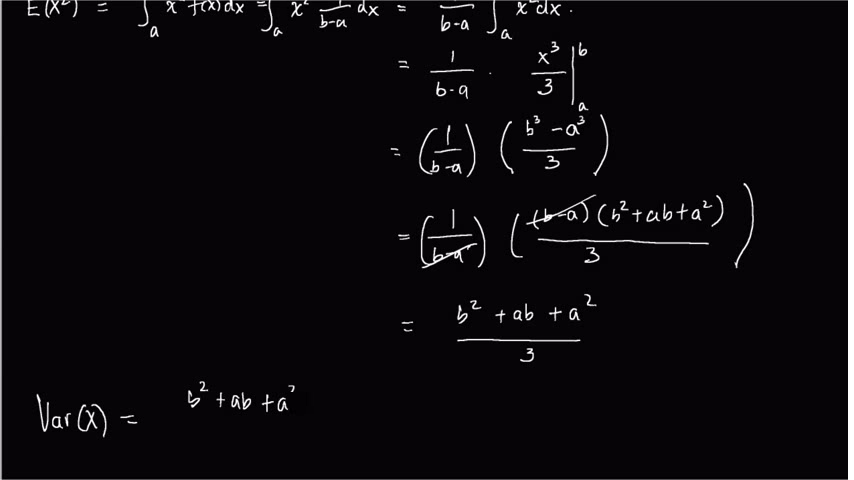 E(X²) = ∫ₐ x² f(x) dx = ∫ₐ x² 1/(b-a) dx = /(b-a) ∫ₐ x² dx.
= 1/(b-a) · x³/3 |ₐᵇ
= (1/(b-a)) ((b³ - a³)/3)
= (1/(b-a)) ((b-a)(b² + ab + a²)/3)
= (b² + ab + a²)/3
Var(X) = b² + ab + a²